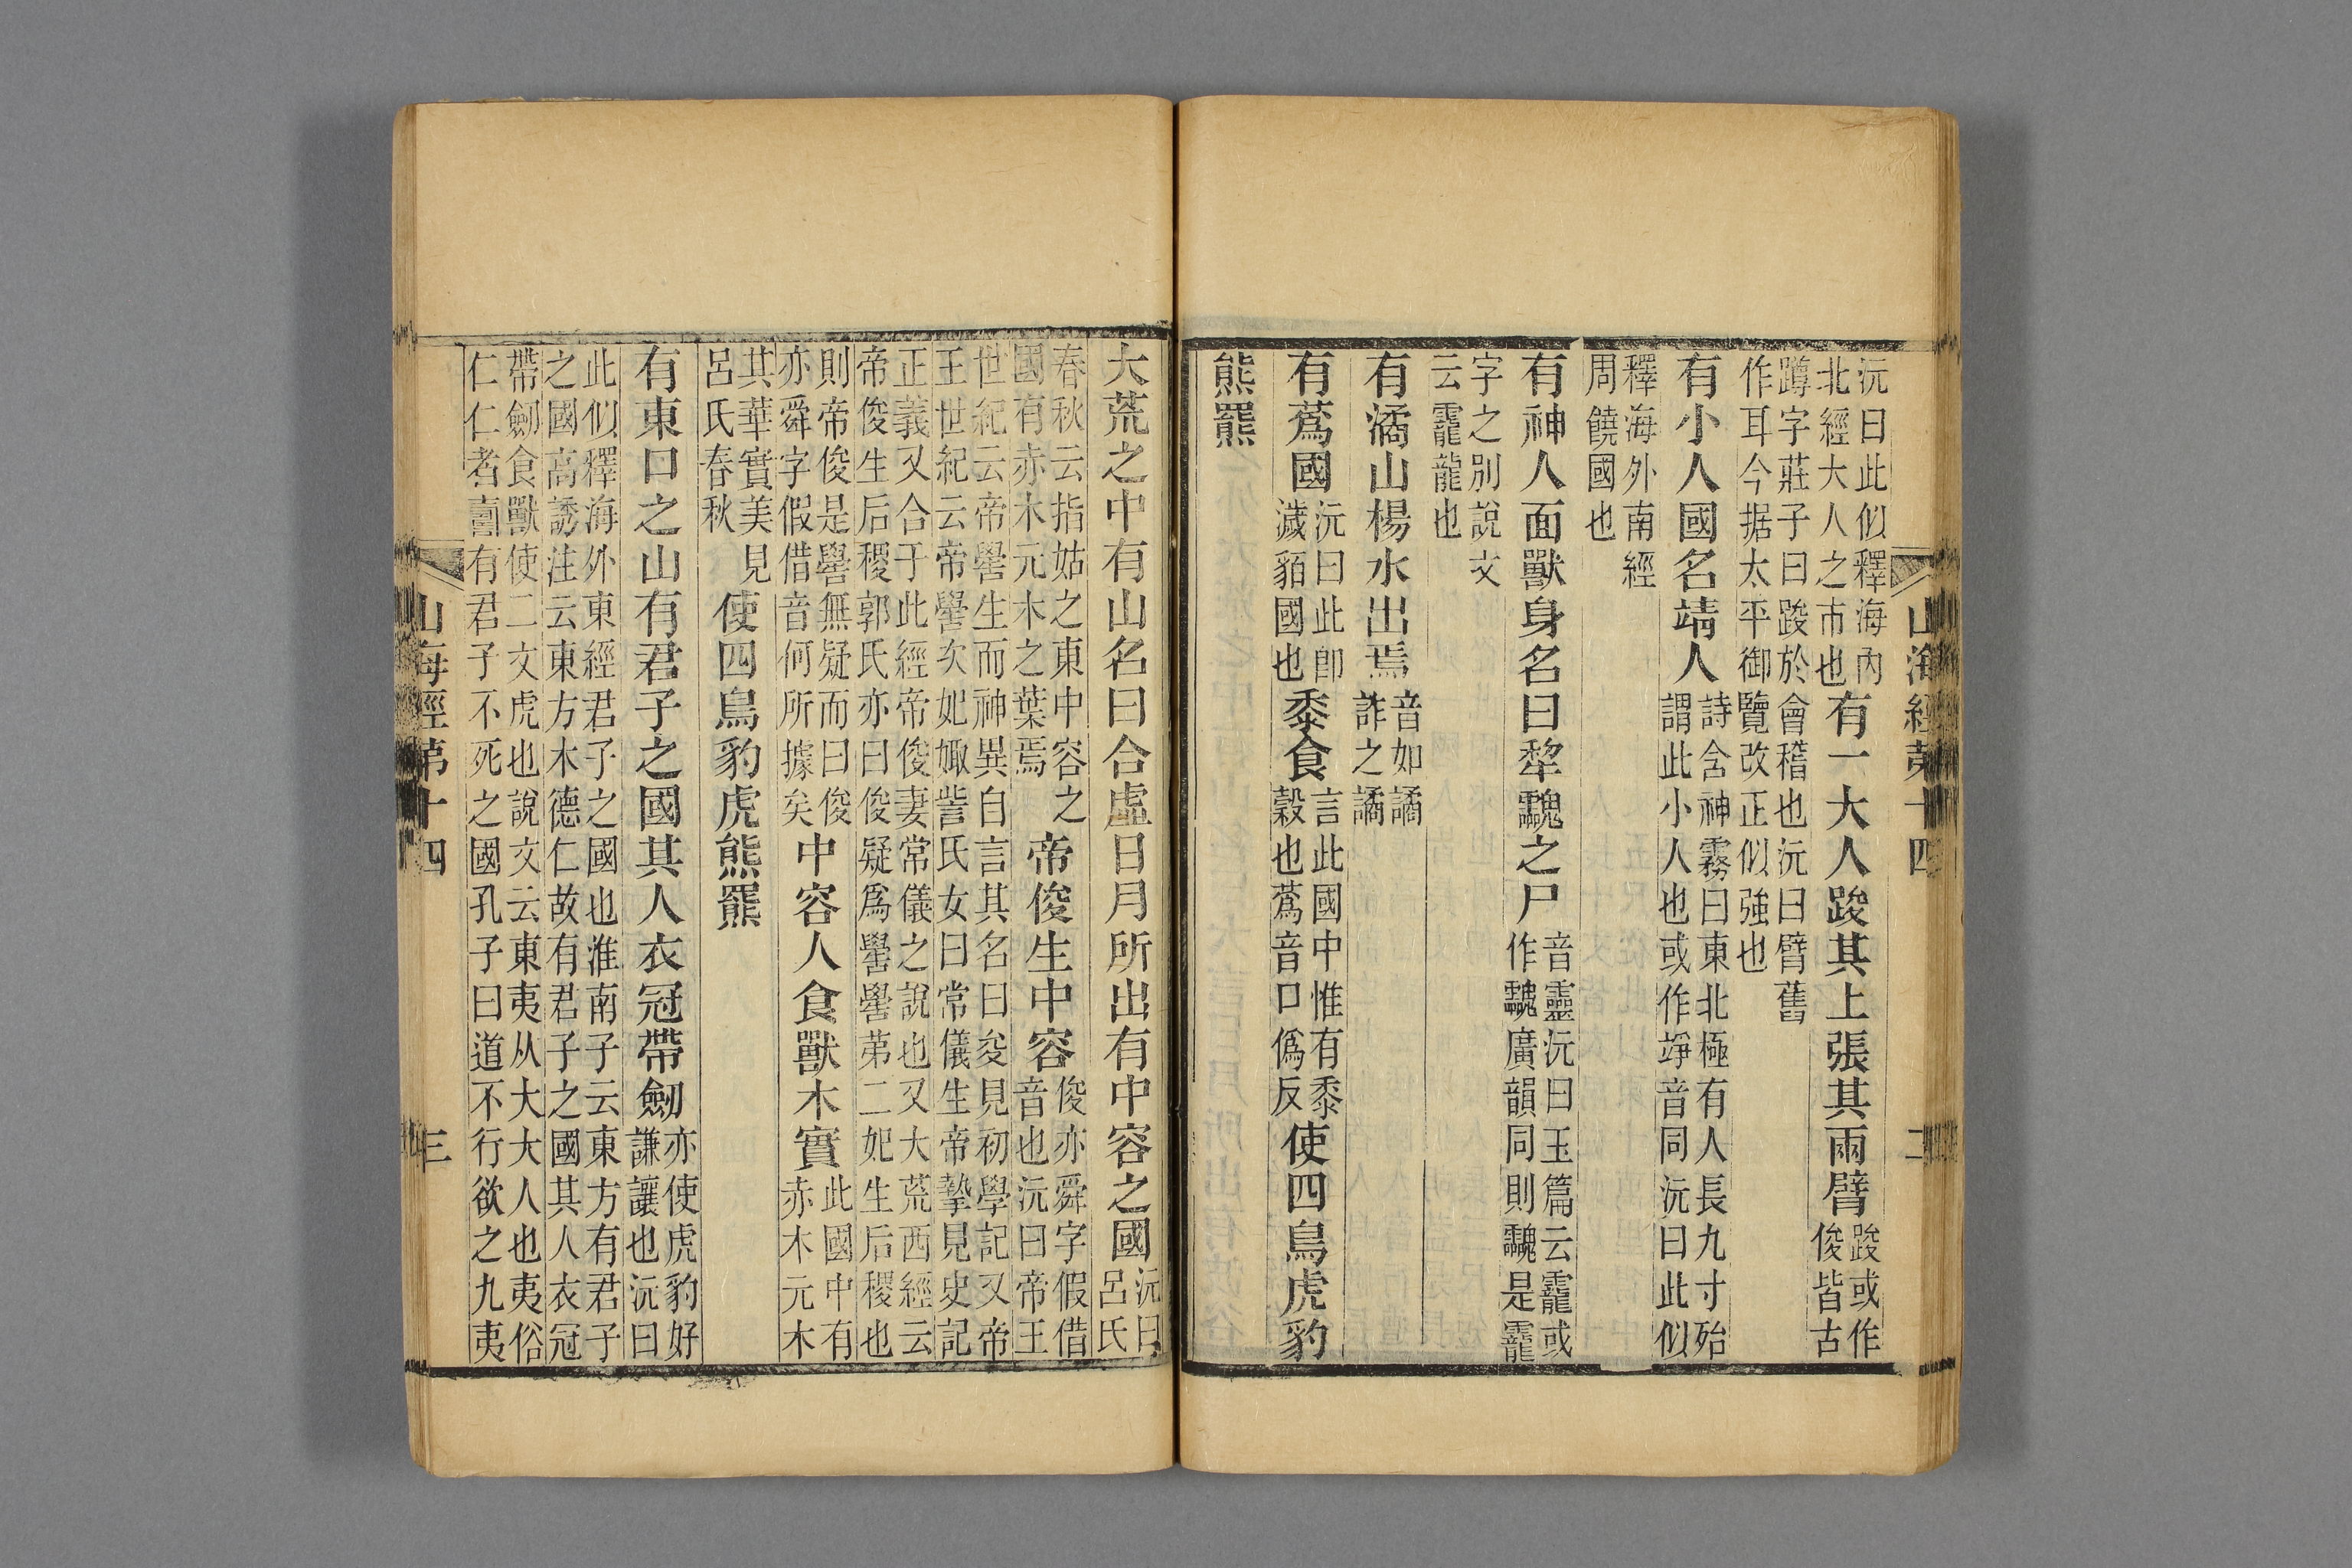 山海經第十四
二
沅曰此似釋海內
北經大人之市也
有一大人踆其上張其兩臂
踆或作
俊皆古
蹲字莊子曰踆於會稽也沅曰臂舊
作耳今据太平御覽改正似強也
有小人國名靖人
詩含神霧曰東北極有人長九寸殆
謂此小人也或作竫音同沅曰此似
釋海外南經
周饒國也
有神人面獸身名曰犂䰱之尸
音靈沅曰玉篇云龗或
作䰱廣韻同則䰱是龗
字之別說文
云龗龍也
有潏山楊水出焉
音如譎
詐之譎
有蔿國
沅曰此卽
濊貊國也
黍食
言此國中惟有黍
穀也蔿音口僞反
使四鳥虎豹
熊羆
大荒之中有山名曰合虛日月所出有中容之國
沅曰
呂氏
春秋云指姑之東中容之
國有赤木元木之葉焉
帝俊生中容
俊亦舜字假借
音也沅曰帝王
世紀云帝嚳生而神異自言其名曰夋見初學記又帝
王世紀云帝嚳次妃娵訾氏女曰常儀生帝摯見史記
正義又合于此經帝俊妻常儀之說也又大荒西經云
帝俊生后稷郭氏亦曰俊疑爲嚳嚳苐二妃生后稷也
則帝俊是嚳無疑而曰俊
亦舜字假借音何所據矣
中容人食獸木實
此國中有
赤木元木
其華實美見
呂氏春秋
使四鳥豹虎熊羆
有東口之山有君子之國其人衣冠帶劒
亦使虎豹好
謙讓也沅曰
此似釋海外東經君子之國也淮南子云東方有君子
之國高誘注云東方木德仁故有君子之國其人衣冠
帶劒食獸使二文虎也說文云東夷从大大人也夷俗
仁仁者壽有君子不死之國孔子曰道不行欲之九夷
山海經第十四
三